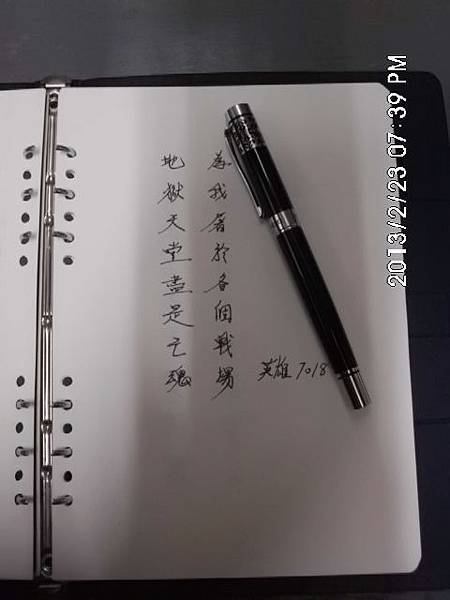 為我於各個戰場
地獄天堂盡是亡魂
英雄 7018
2013/2/23 07:39 PM